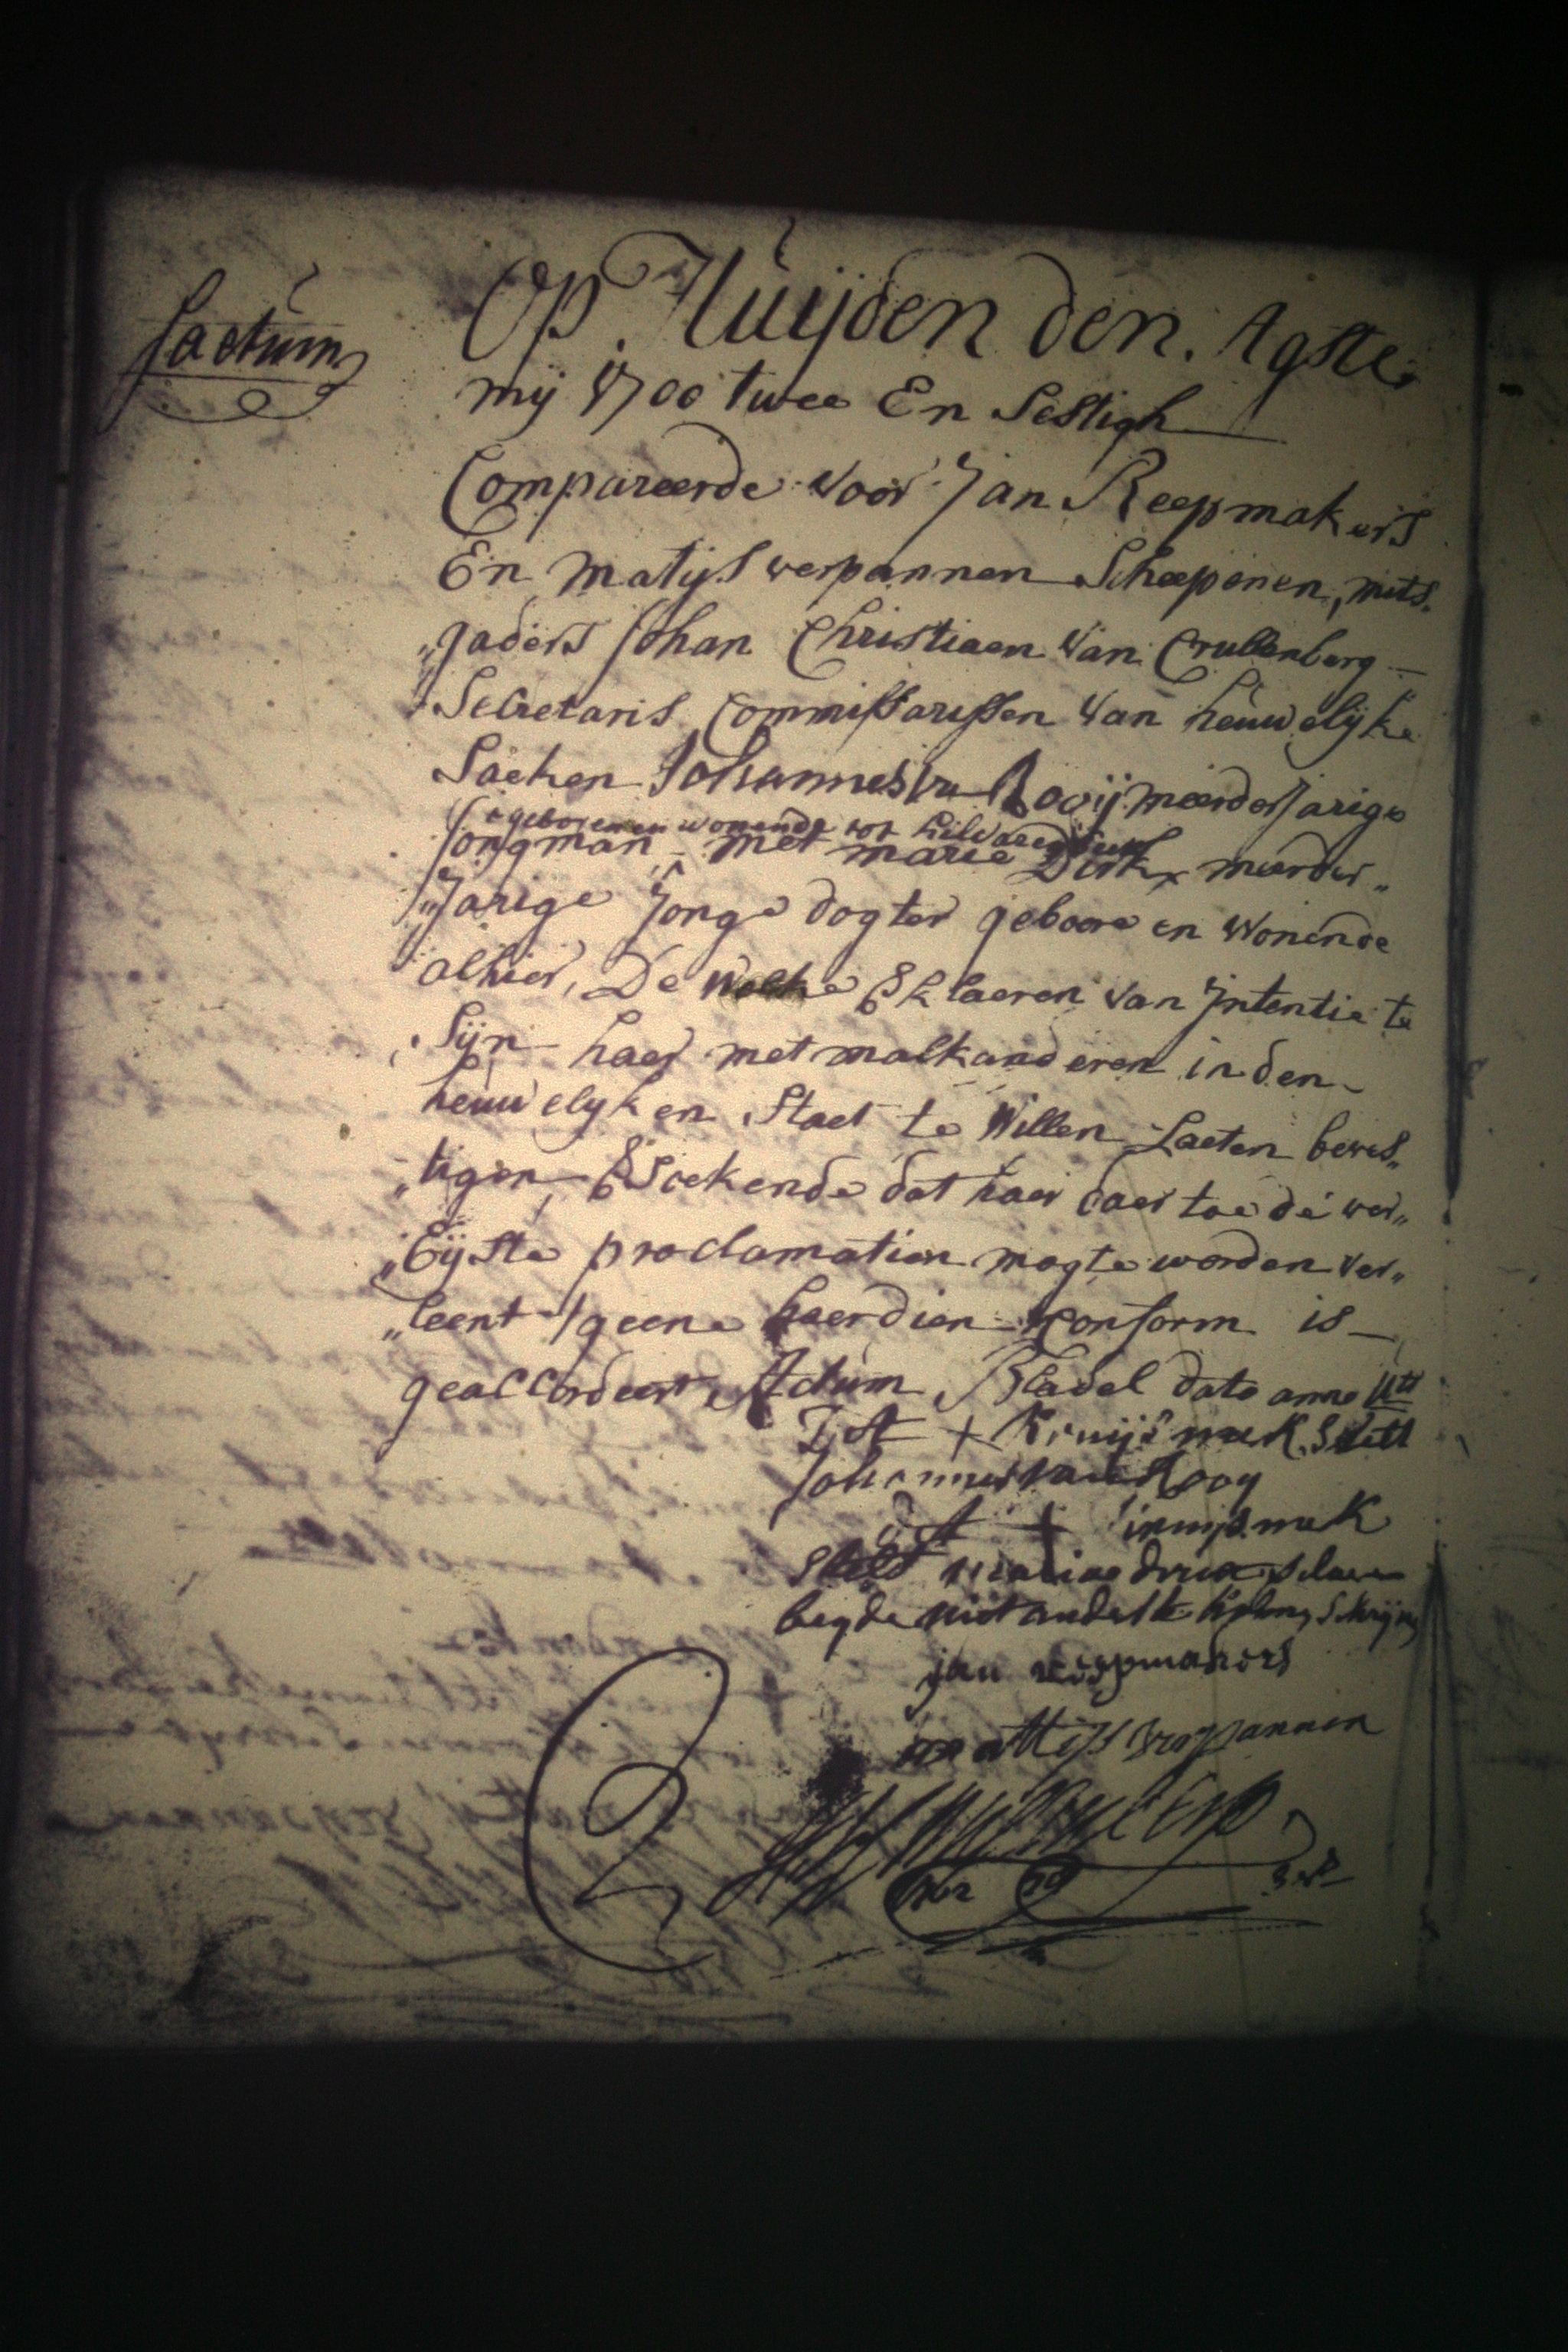 factum
Op Huijden den Agste
mij 1700 twee En Sestigh
Compareerde voor Jan Reepmakers
En Matijs verpannen Scheepenen, mits„
„gaders Johan Christiaen van Crullenberg
Secretaris Commissarissen van heuwelijke
Saeken Johannes van Rooij meerderjarige
geboren en wonende tot hilvarenbeek
Jongman met marie Dirkx meerder„
„Jarige Jonge dogter geboore en wonende
alhier, De welke Verklaeren van Intentie te
Sijn haer met malkanderen in den
heuwelijken Staet te willen Laeten beves„
„tigen, Versoekende dat haer daer toe de ver„
„Eijste proclamatien mogte worden ver„
„leent 't geene haer dien conform is
geaccordeert, Actum Bladel dato anno Utt
Dit + Kruijs merk Stelt
Johannes van Rooy
Dit + kruijs merk
Stelt
jan reepmakers
mattijs verpannen